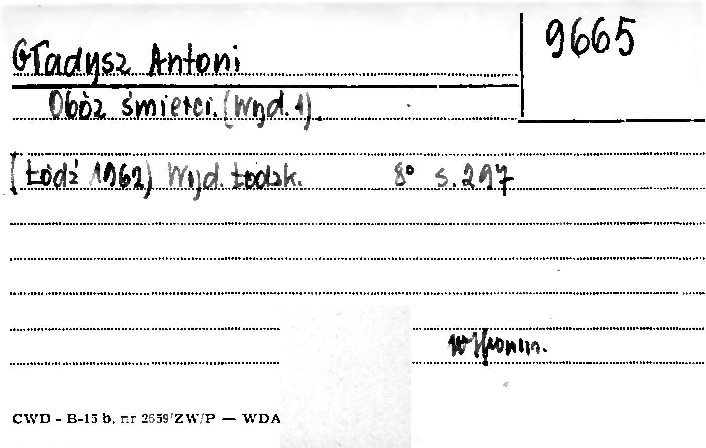 9665
Gładysz Antoni
Obóz śmierci. (Wyd. 1)
[Łódź 1962) Wyd. Łódzk. 8° s. 297
Wspomn.
CWD - B-15 b, nr 2659/ZW/P — WDA